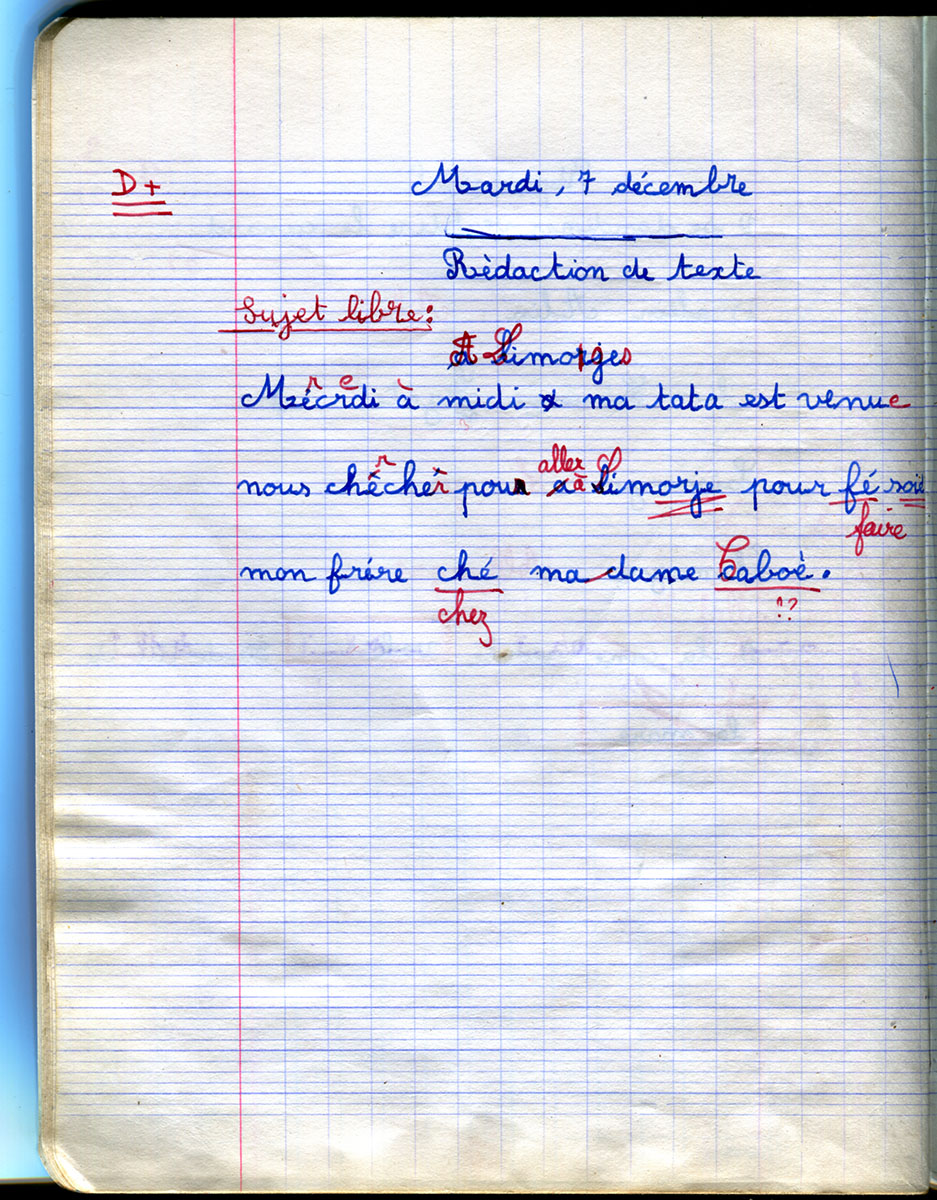 D+
Mardi, 7 décembre
Rédaction de texte
Sujet libre:
A Limorges
Mécrdi à midi ma tata est venue
r e
nous chêcher pour à Limorje pour fé soi
r aller
faire
mon frére ché ma dame Caboè.
chez ??